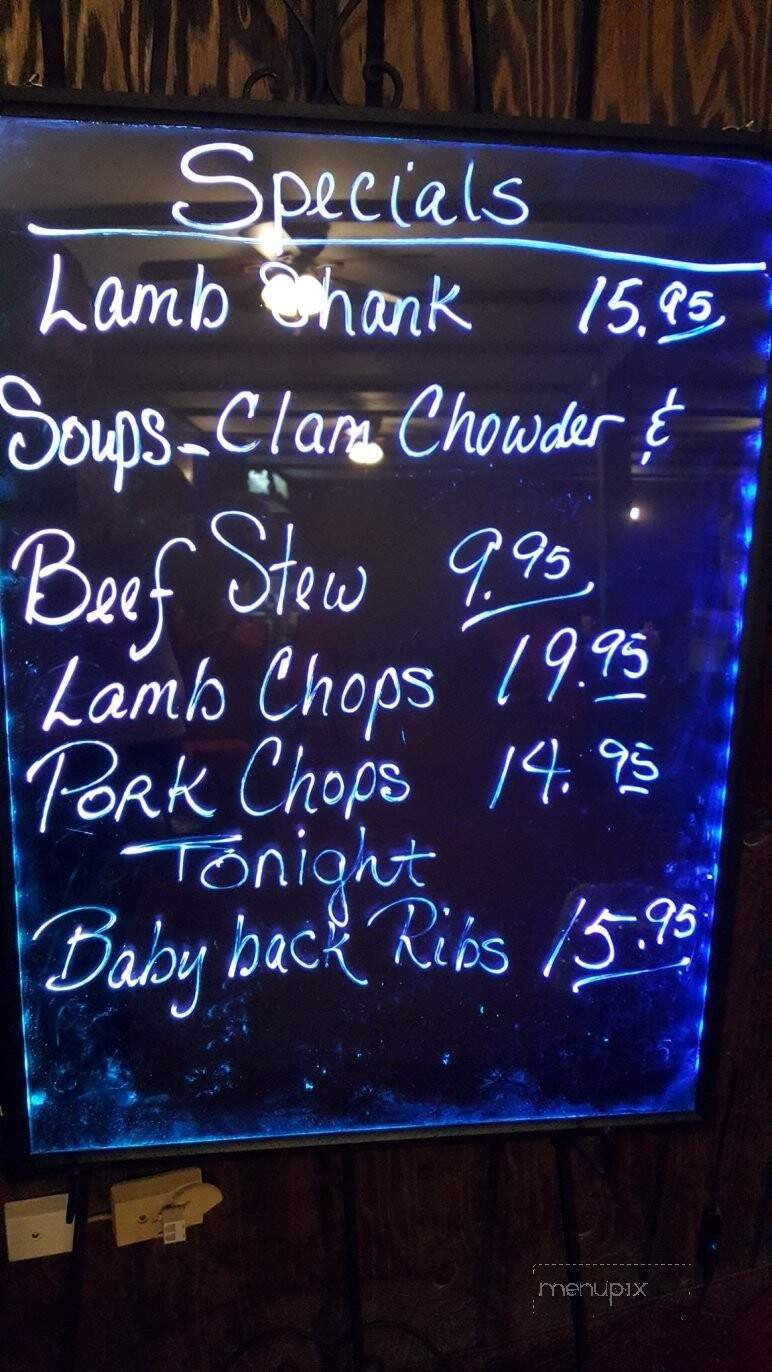 Specials
Lamb Shank 15.95
Soups-Clam Chowder &
Beef Stew 9.95
Lamb Chops 19.95
PORK Chops 14.95
Tonight
Baby back Ribs 15.95
menupix